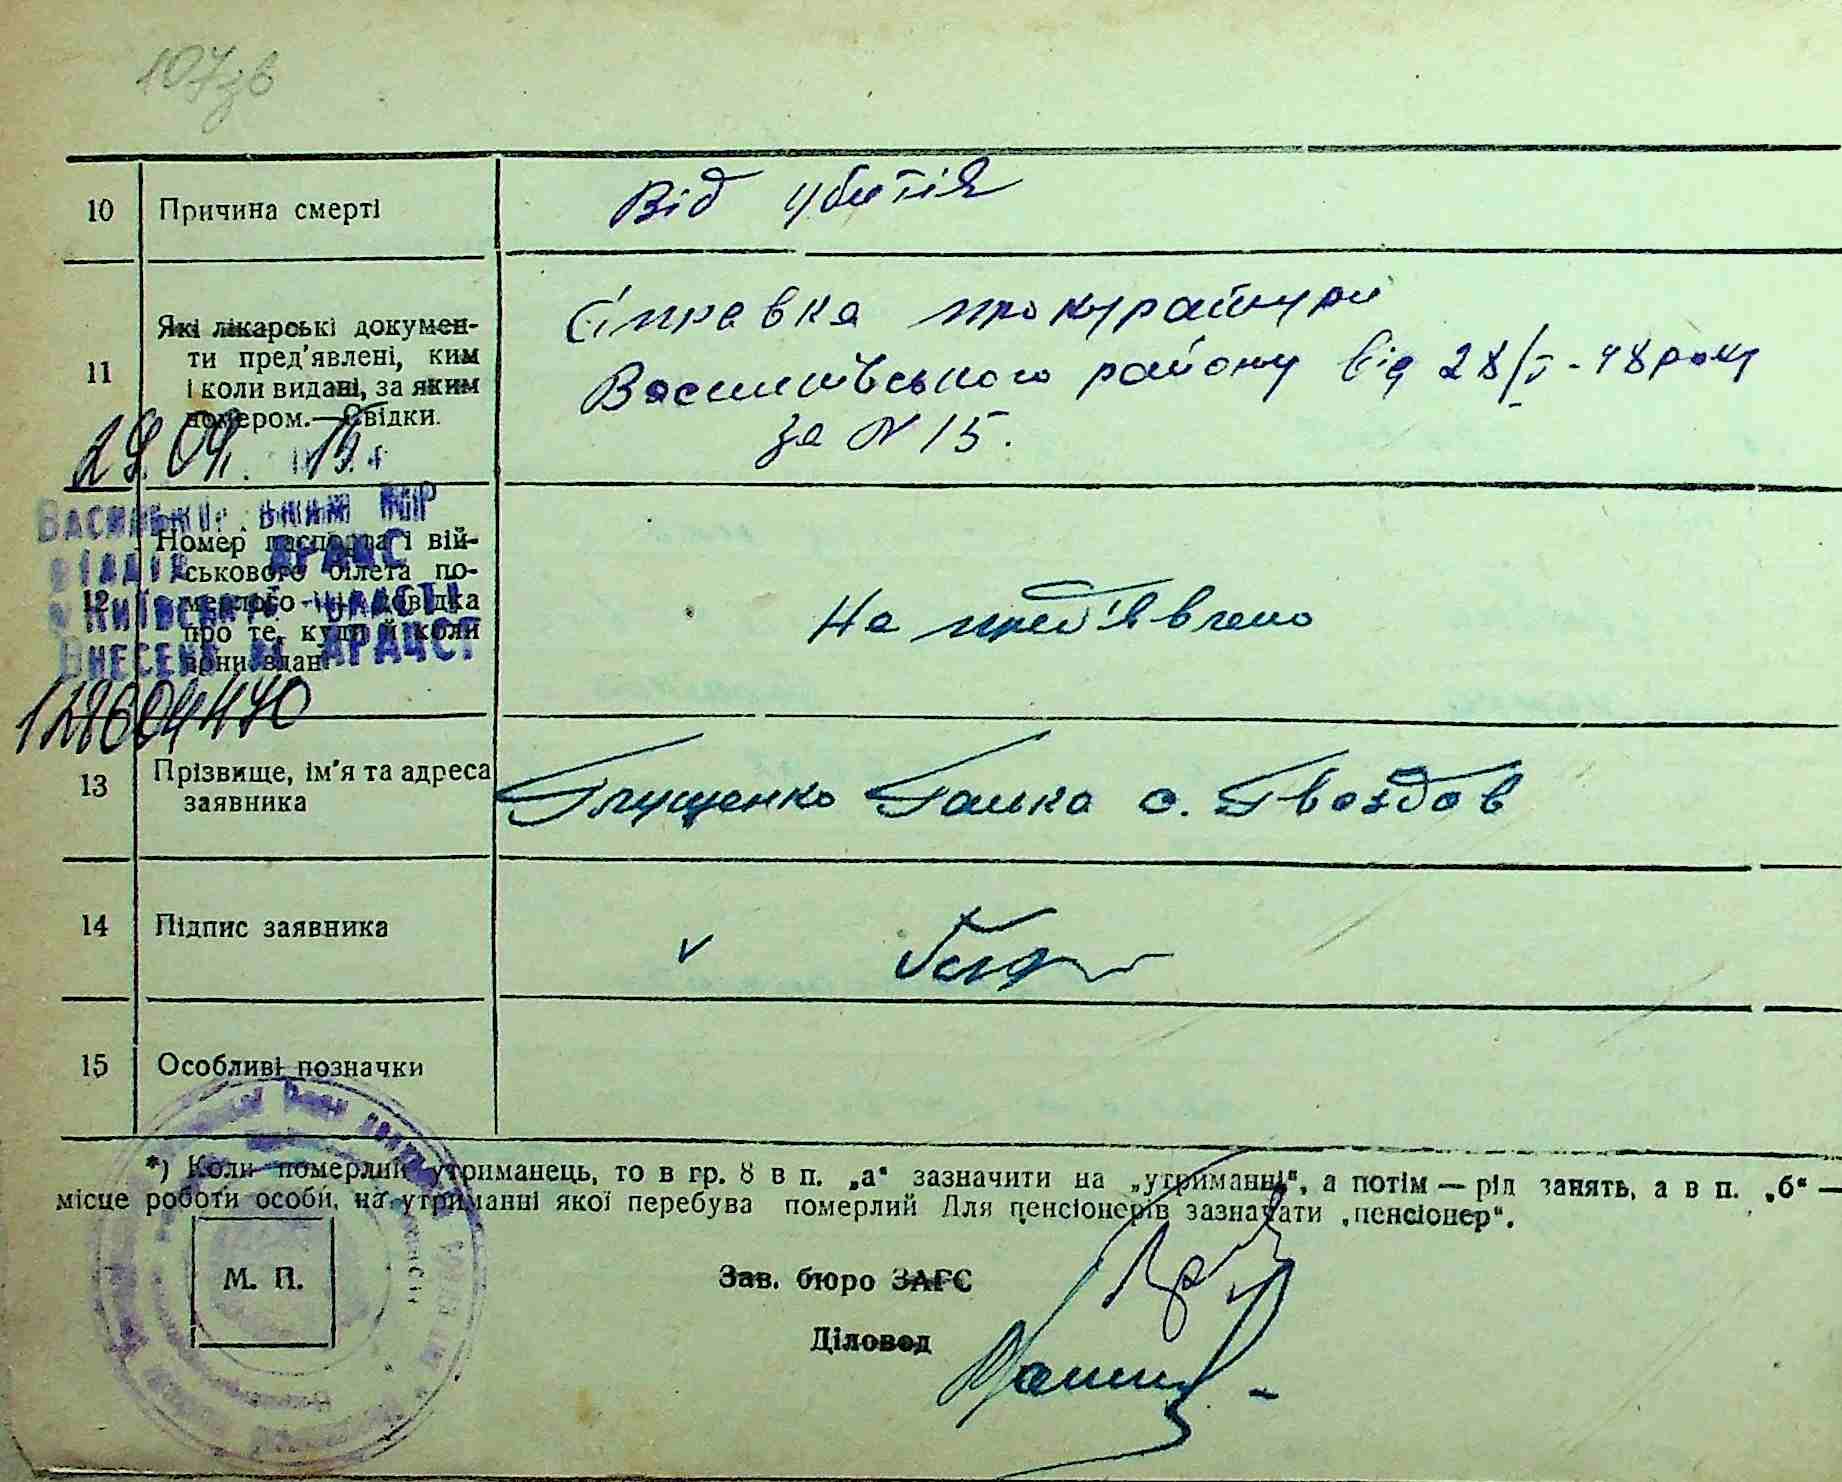 107зв
10 Причина смерті
Від убитія
11 Які лікарські докумен-
ти пред'явлені, ким
і коли видані, за яким
номером.—Свідки.
Справка прокуратури
Васильківського району від 28/V-48 року
за N 15.
29.04. 15
Васильків ський МР
відділ ДРАЦС
Київської області
Внесено до ДРАЦСГ
128604470
12 Номер паспорта і вій-
ськового білета по-
мерлого довідка
про те, куди й коли
вони здані
Не пред'явлено
13 Прізвище, ім'я та адреса
заявника
Глущенко Галька с. Гвоздов
14 Підпис заявника
v
15 Особливі позначки
*) Коли померлий утриманець, то в гр. 8 в п. „а“ зазначити на „утриманні“, а потім — рід занять, а в п. „б“ —
місце роботи особи, на утриманні якої перебува померлий Для пенсіонерів зазначати „пенсіонер“.
М. П.
Зав. бюро ЗАГС
Діловод